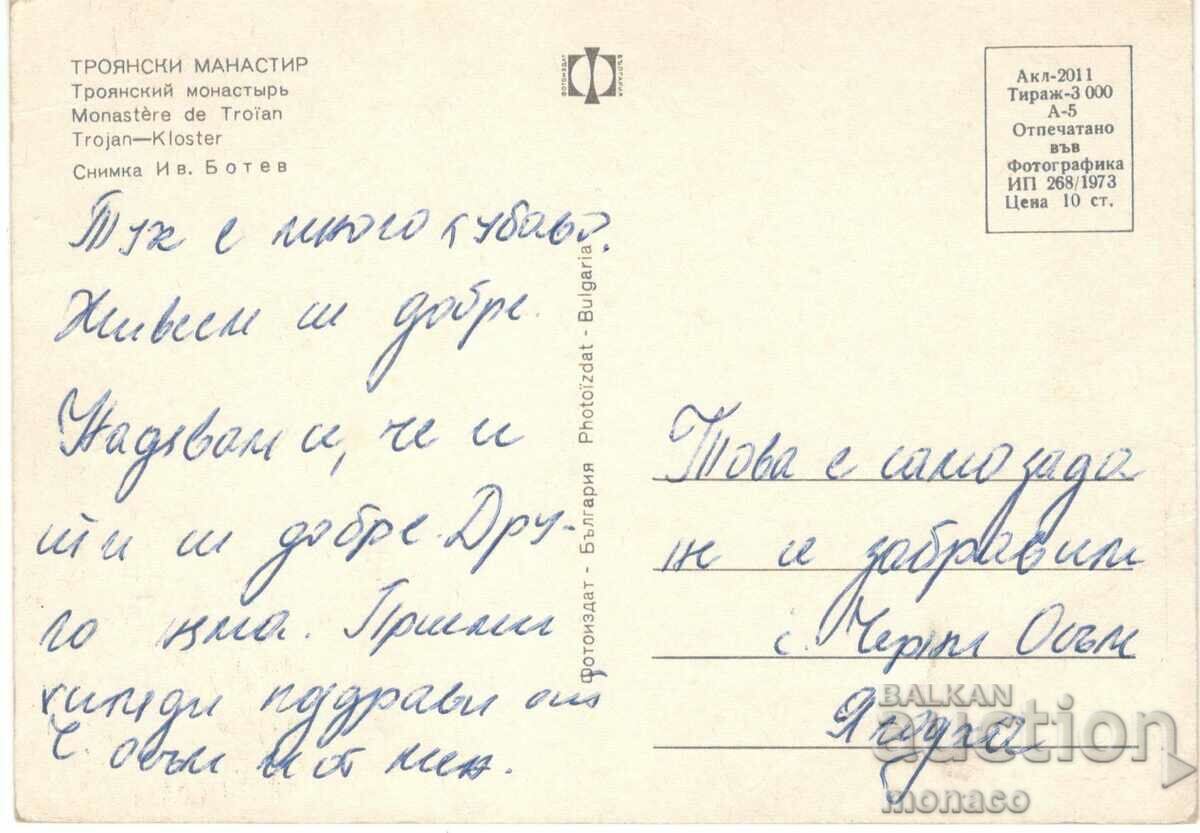 ТРОЯНСКИ МАНАСТИР
Троянский монастырь
Monastère de Troïan
Trojan—Kloster
Снимка Ив. Ботев
ФОТОИЗДАТ
БЪЛГАРИЯ
Акл-2011
Тираж-3 000
А-5
Отпечатано
във
Фотографика
ИП 268/1973
Цена 10 ст.
Тук е много хубаво.
Живеем ш добре.
Надявам и, че и
ти ш добре. Дру-
го няма. Приеми
хиляди поздрави от
Ч осъм и от мен.
Фотоиздат - България Photoïzdat - Bulgaria
Това е само за да
не и забравим
с. Черни Осъм
BALKAN
auction
monaco